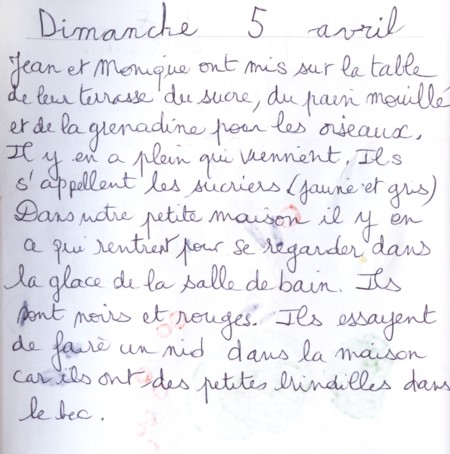 Dimanche 5 avril
Jean et Monique ont mis sur la table
de leur terrasse du sucre, du pain mouillé
et de la grenadine pour les oiseaux.
Il y en a plein qui viennent. Ils
s'appellent les sucriers (jaune et gris)
Dans notre petite maison il y en
a qui rentrent pour se regarder dans
la glace de la salle de bain. Ils
sont noirs et rouges. Ils essayent
de faire un nid dans la maison
car ils ont des petites brindilles dans
le bec.